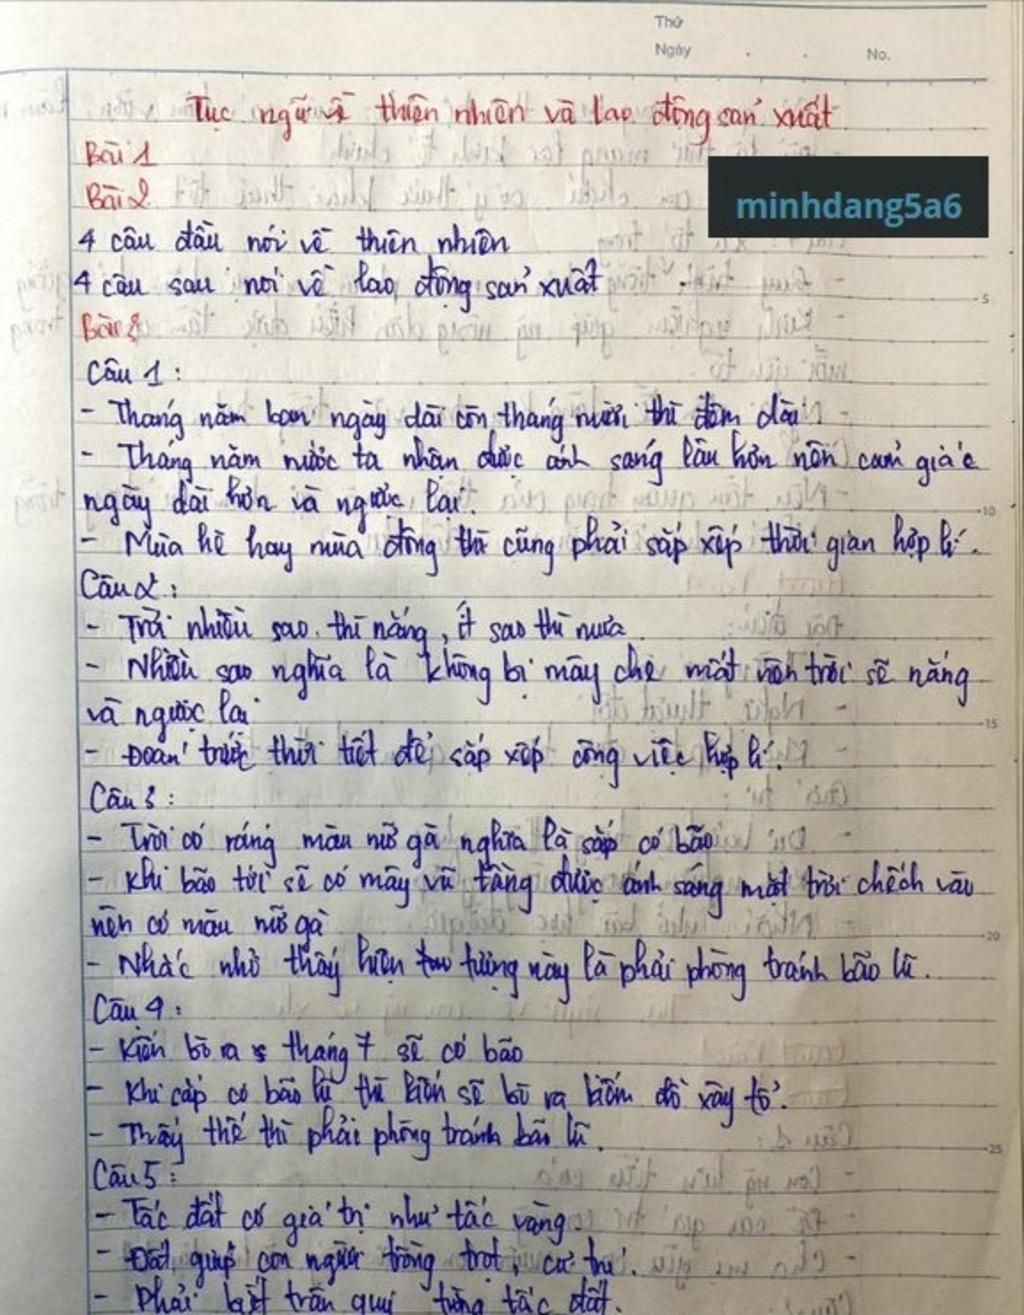 Thứ
Ngày . . No.
Tục ngữ về thiên nhiên và lao động sản xuất
Bài 1
Bài 2
minhdang5a6
4 câu đầu nói về thiên nhiên
4 câu sau nói về lao động sản xuất
5
Bài 3
Câu 1:
- Tháng năm ban ngày dài còn tháng mười thì đêm dài.
- Tháng năm nước ta nhận được ánh sáng lâu hơn nên cảm giác
ngày dài hơn và ngược lại.
10
- Mùa hè hay mùa đông thì cũng phải sắp xếp thời gian hợp lí.
Câu 2:
- Trời nhiều sao thì nắng, ít sao thì mưa
- Nhiều sao nghĩa là không bị mây che mất nên trời sẽ nắng
và ngược lại
15
- Đoán trước thời tiết để sắp xếp công việc hợp lí.
Câu 3:
- Trời có ráng màu mỡ gà nghĩa là sắp có bão
- Khi bão tới sẽ có mây vũ tầng được ánh sáng mặt trời chếch vào
nên có màu mỡ gà
20
- Nhắc nhở thấy hiện tượng này là phải phòng tránh bão lũ.
Câu 4:
- Kiến bò ra tháng 7 sẽ có bão
- Khi cáp có bão lũ thì kiến sẽ bò ra kiếm đồ xây tổ.
- Thấy thế thì phải phòng tránh bão lũ.
25
Câu 5:
- Tấc đất có giá trị như tấc vàng.
- Đất giúp con người trồng trọt, cư trú.
- Phải biết trân quí từng tấc đất.